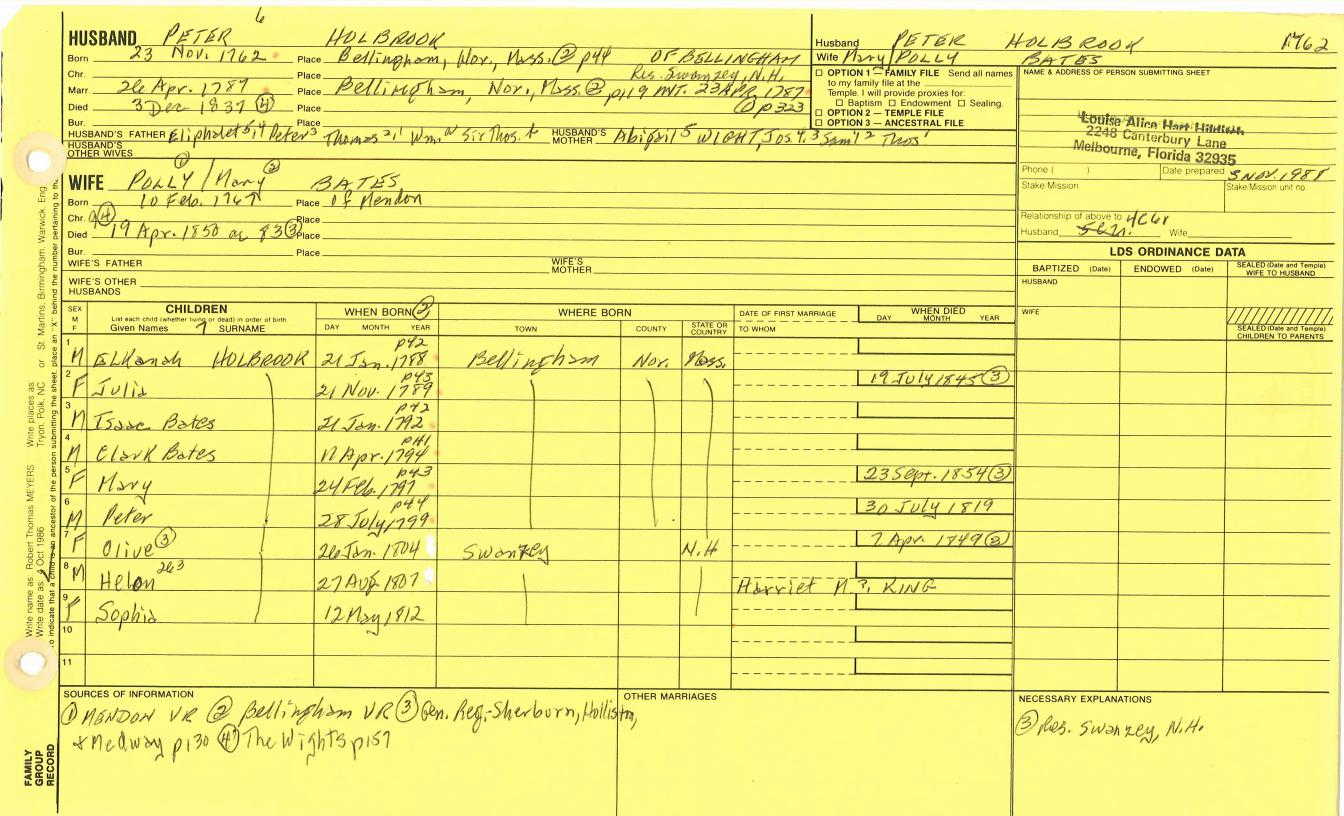 6
HUSBAND PETER HOLBROOK
Born 23 Nov. 1762 Place Bellingham, Wor., Mass. ② p44 OF BELLINGHAM
Chr. Place Res. Swanzey, N.H.
Marr 26 Apr. 1787 Place Bellingham, Nor., Mass. ② p119 INT. 23 APR. 1787
Died 3 Dec 1837 ④ Place ① p323
Bur. Place
HUSBAND'S FATHER Eliphalet 5,4 Peter 3 Thomas 2,1 Wm. a Sir Thos. t HUSBAND'S MOTHER Abigail 5 WIGHT, Jos 4,3 Sam'l 2 Thos 1
HUSBAND'S OTHER WIVES
WIFE POLLY ① / Mary ② BATES
Born 10 Feb. 1767 Place of Mendon
Chr. ④ Place
Died 19 Apr. 1850 ae 83 ③ Place
Bur. Place
WIFE'S FATHER WIFE'S MOTHER
WIFE'S OTHER HUSBANDS
Husband PETER HOLBROOK 1762
Wife Mary/POLLY BATES
☐ OPTION 1 — FAMILY FILE Send all names
to my family file at the
Temple. I will provide proxies for:
☐ Baptism ☐ Endowment ☐ Sealing.
☐ OPTION 2 — TEMPLE FILE
☐ OPTION 3 — ANCESTRAL FILE
NAME & ADDRESS OF PERSON SUBMITTING SHEET
Louise Alice Hart Hildreth
2248 Canterbury Lane
Melbourne, Florida 32935
Phone ( ) Date prepared 3 NOV. 1988
Stake Mission Stake Mission unit no.
Relationship of above to 4C6r
Husband 5C2r. Wife
LDS ORDINANCE DATA
BAPTIZED (Date) ENDOWED (Date) SEALED (Date and Temple) WIFE TO HUSBAND
HUSBAND
WIFE
SEALED (Date and Temple) CHILDREN TO PARENTS
SEX M F CHILDREN WHEN BORN ② WHERE BORN DATE OF FIRST MARRIAGE WHEN DIED
List each child (whether living or dead) in order of birth
Given Names 7 SURNAME DAY MONTH YEAR TOWN COUNTY STATE OR COUNTRY TO WHOM DAY MONTH YEAR
1 M ELKanah HOLBROOK 21 Jan. 1788 p42 Bellingham Nor. Mass.
2 F Julia 21 Nov. 1789 p43 19 July 1845 ③
3 M Isaac Bates 21 Jan. 1792 p42
4 M Clark Bates 17 Apr. 1794 p41
5 F Mary 24 Feb. 1797 p43 23 Sept. 1854 ③
6 M Peter 28 July 1799 p44 30 July 1819
7 F Olive ③ 26 Jan. 1804 Swanzey N.H 7 Apr. 1749 ③
8 M Helon 2&3 27 Aug 1807 Harriet M.?, KING
9 F Sophia 12 May 1812
10
11
SOURCES OF INFORMATION
① MENDON VR ② Bellingham VR ③ Gen. Reg. - Sherburn, Holliston,
& Medway p130 ④ The Wights p157
OTHER MARRIAGES
NECESSARY EXPLANATIONS
③ Res. Swanzey, N.H.
Write name as Robert Thomas MEYERS Write places as Tryon, Polk, NC or St. Martins, Birmingham, Warwick, Eng.
Write date as 4 Oct 1986
To indicate that a child is an ancestor of the person submitting the sheet, place an "X" behind the number pertaining to the
FAMILY GROUP RECORD